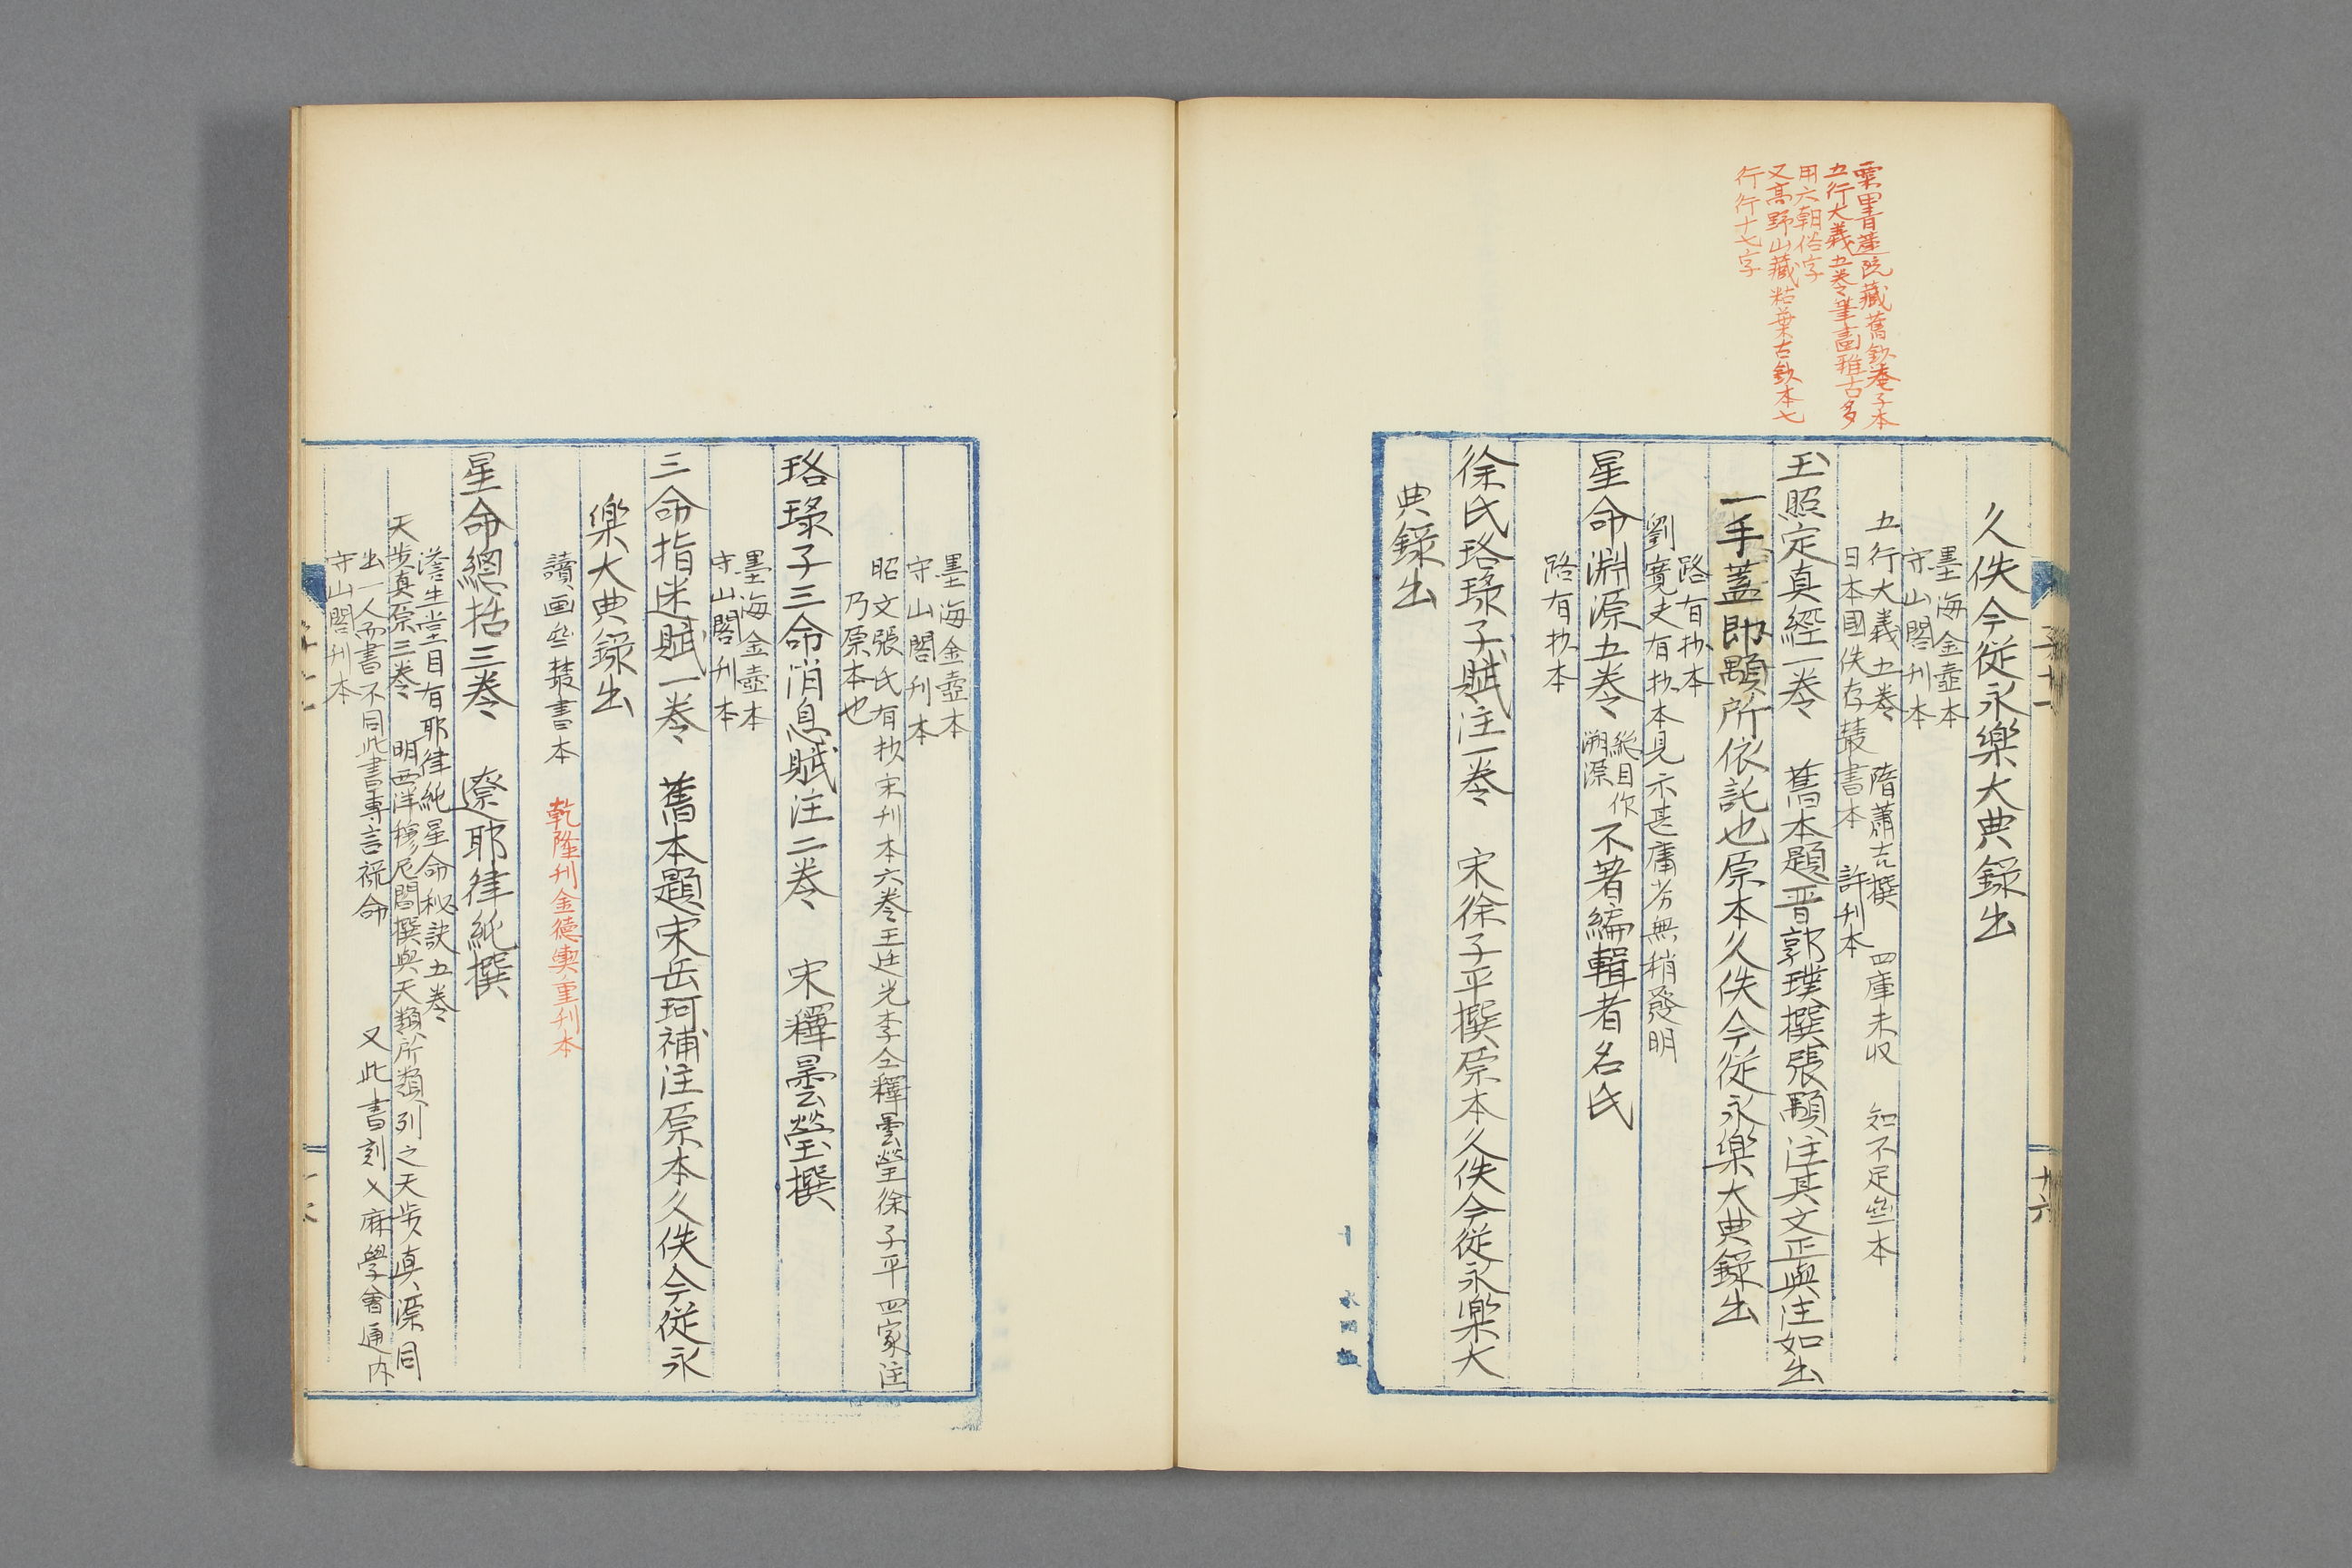 栗田青蓮院藏舊鈔卷子本
五行大義五卷筆畫雅古多
用六朝俗字
又高野山藏粘葉古鈔本七
行行十七字
子十一
十六
久佚今從永樂大典錄出
墨海金壺本
守山閣刊本
五行大義五卷 隋蕭吉撰 四庫未收 知不足齋本
日本國佚存叢書本 許刊本
玉照定真經一卷 舊本題晉郭璞撰張顒注其文正與注如出
一手蓋即顒所依託也原本久佚今從永樂大典錄出
路有抄本
劉寬夫有抄本見示甚庸劣無稍發明
星命淵源五卷 總目作溯源 不著編輯者名氏
路有抄本
徐氏珞琭子賦注一卷 宋徐子平撰原本久佚今從永樂大
典錄出
墨海金壺本
守山閣刊本
昭文張氏有抄宋刊本六卷王廷光李仝釋曇瑩徐子平四家注
乃原本也
珞琭子三命消息賦注二卷 宋釋曇瑩撰
墨海金壺本
守山閣刊本
三命指迷賦一卷 舊本題宋岳珂補注原本久佚今從永
樂大典錄出
讀画齋叢書本 乾隆刊金德輿重刊本
星命總括三卷 遼耶律純撰
澹生堂目有耶律純星命秘訣五卷
天步真原三卷 明西洋穆尼閣撰與天類所類列之天步真源同
出一人而書不同此書專言祿命 又此書刻入麻學會通內
守山閣刊本